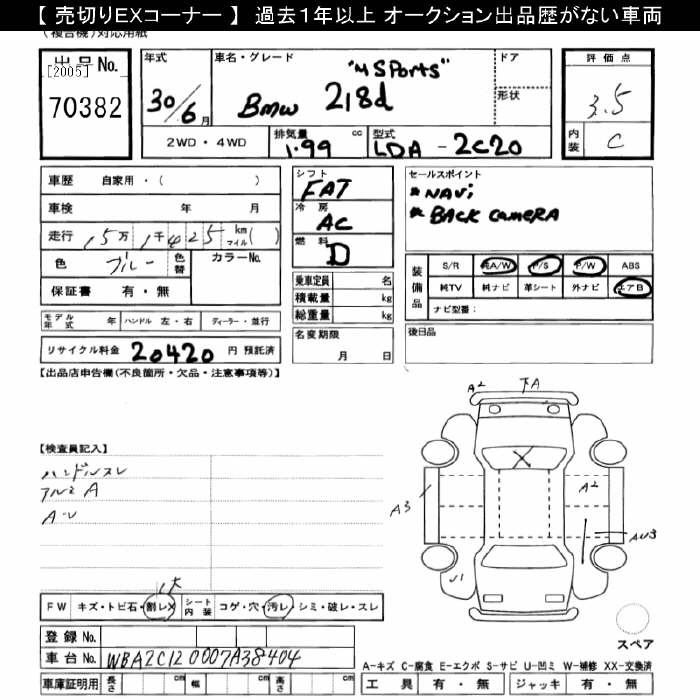 【 売切りEXコーナー 】 過去１年以上 オークション出品歴がない車両
(複合機) 対応用紙
出 品 No.
[2005]
70382
年式
30/6月
車名・グレード
"M Sports"
BMW 218d
ドア
形状
評 価 点
3.5
内装
C
2WD・4WD
排気量
cc
1.99
型式
LDA - 2C20
車歴 自家用・( )
車検 年 月
走行 15万 1千425 km マイル( )
色 ブルー 色替
カラーNo.
保証書 有・無
シフト
FAT
冷房
AC
燃料
D
乗車定員 名
積載量 kg
総重量 kg
セールスポイント
* NAVi
* BACK CAMERA
装備品
S/R 純A/W P/S P/W ABS
純TV 純ナビ 革シート 外ナビ エアB
ナビ型番：
モデル年式 年 ハンドル 左・右 ディーラー・並行
リサイクル料金 20420 円 預託済
名変期限
月 日
後日品
【出品店申告欄(不良箇所・欠品・注意事項等)】
【検査員記入】
ハンドルスレ
アルミ A
A-U
A2
下A
X
A3
A2
AU3
U1
大
FW キズ・トビ石・割レX シート内装 コゲ・穴・汚レ・シミ・破レ・スレ
登録 No.
車台 No. WBA2C120007A38404
車庫証明用 長さ cm 幅 cm 高さ cm
スペア
A-キズ C-腐食 E-エクボ S-サビ U-凹ミ W-補修 XX-交換済
工具 有・無 ジャッキ 有・無